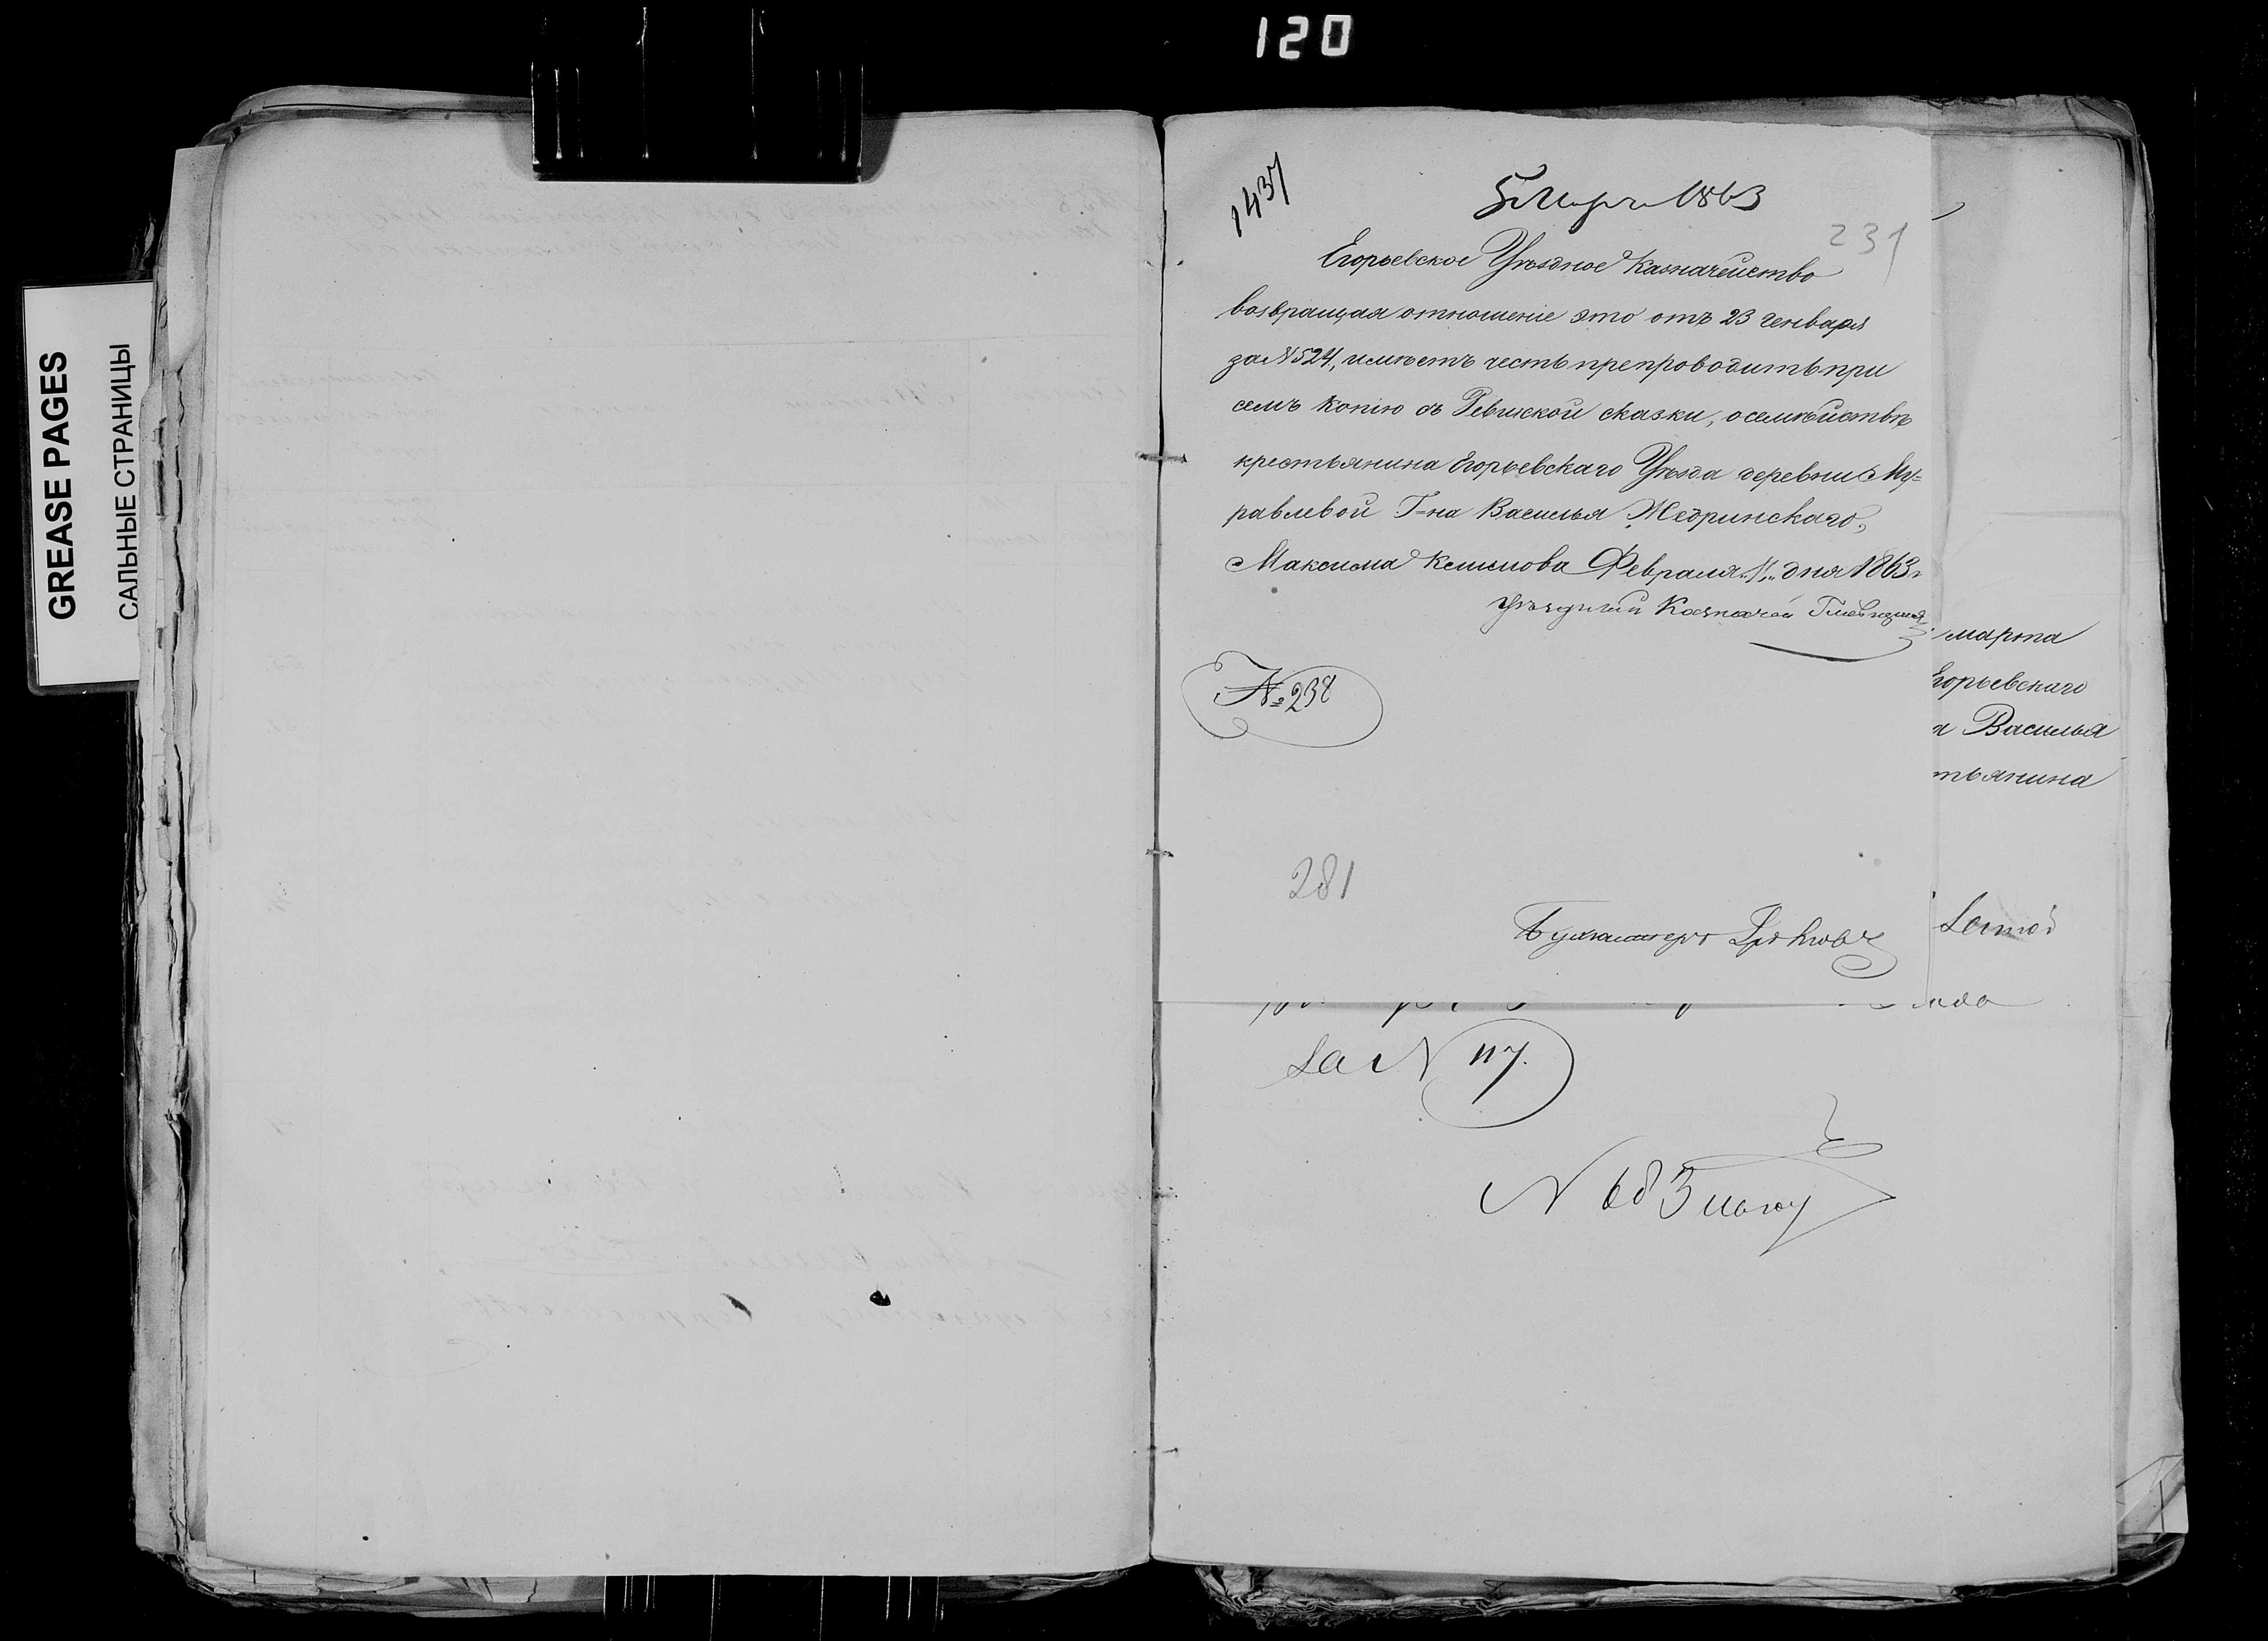 120
GREASE PAGES
САЛЬНЫЕ СТРАНИЦЫ
1437
5 Марта 1863
231
Егорьевское Уѣздное Казначейство
возвращая отношеніе это отъ 23 Генваря
за N 524, имѣетъ честь препроводить при
семъ копію съ Ревижской сказки, о семѣйствѣ
крестьянина Егорьевскаго Уѣзда деревни Му=
равлевой Г=на Василья Жедринскаго,
Максима Февраля дня 1863 г
Уѣздный Казначей
№ 238
281
Бухгалтеръ
марта
Егорьевскаго
Василья
тьянина
за N 117.
N 683